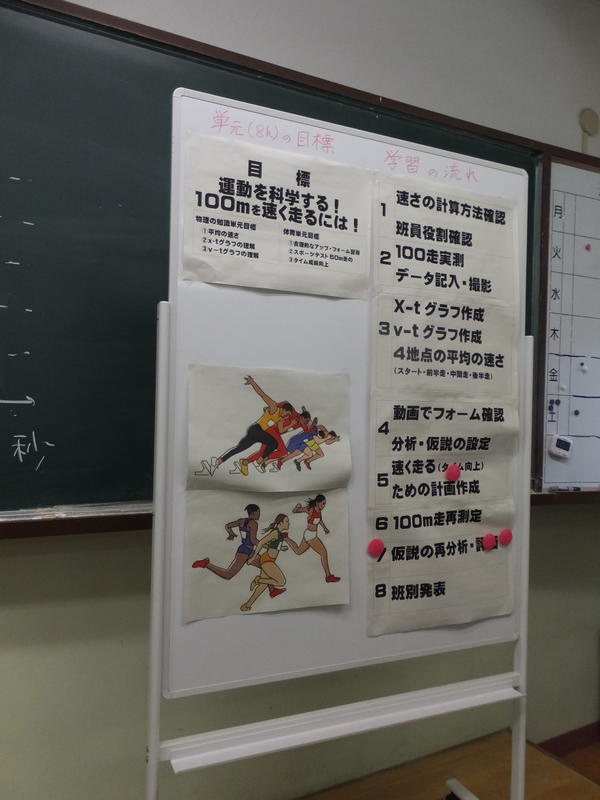 単元(8h)の目標
目 標
運動を科学する!
100mを速く走るには!
物理の知識単元目標
①平均の速さ
②x-tグラフの理解
③v-tグラフの理解
体育単元目標
①合理的なアップ・フォーム習得
②スポーツテスト50m走の
③タイム成績向上
学習の流れ
1 速さの計算方法確認
班員役割確認
2 100走実測
データ記入・撮影
X-tグラフ作成
3 v-tグラフ作成
4地点の平均の速さ
(スタート・前半走・中間走・後半走)
4 動画でフォーム確認
分析・仮説の設定
5 速く走る(タイム向上)
ための計画作成
6 100m走再測定
7 仮説の再分析・評価
8 班別発表
秒
月
火
水
木
金
土